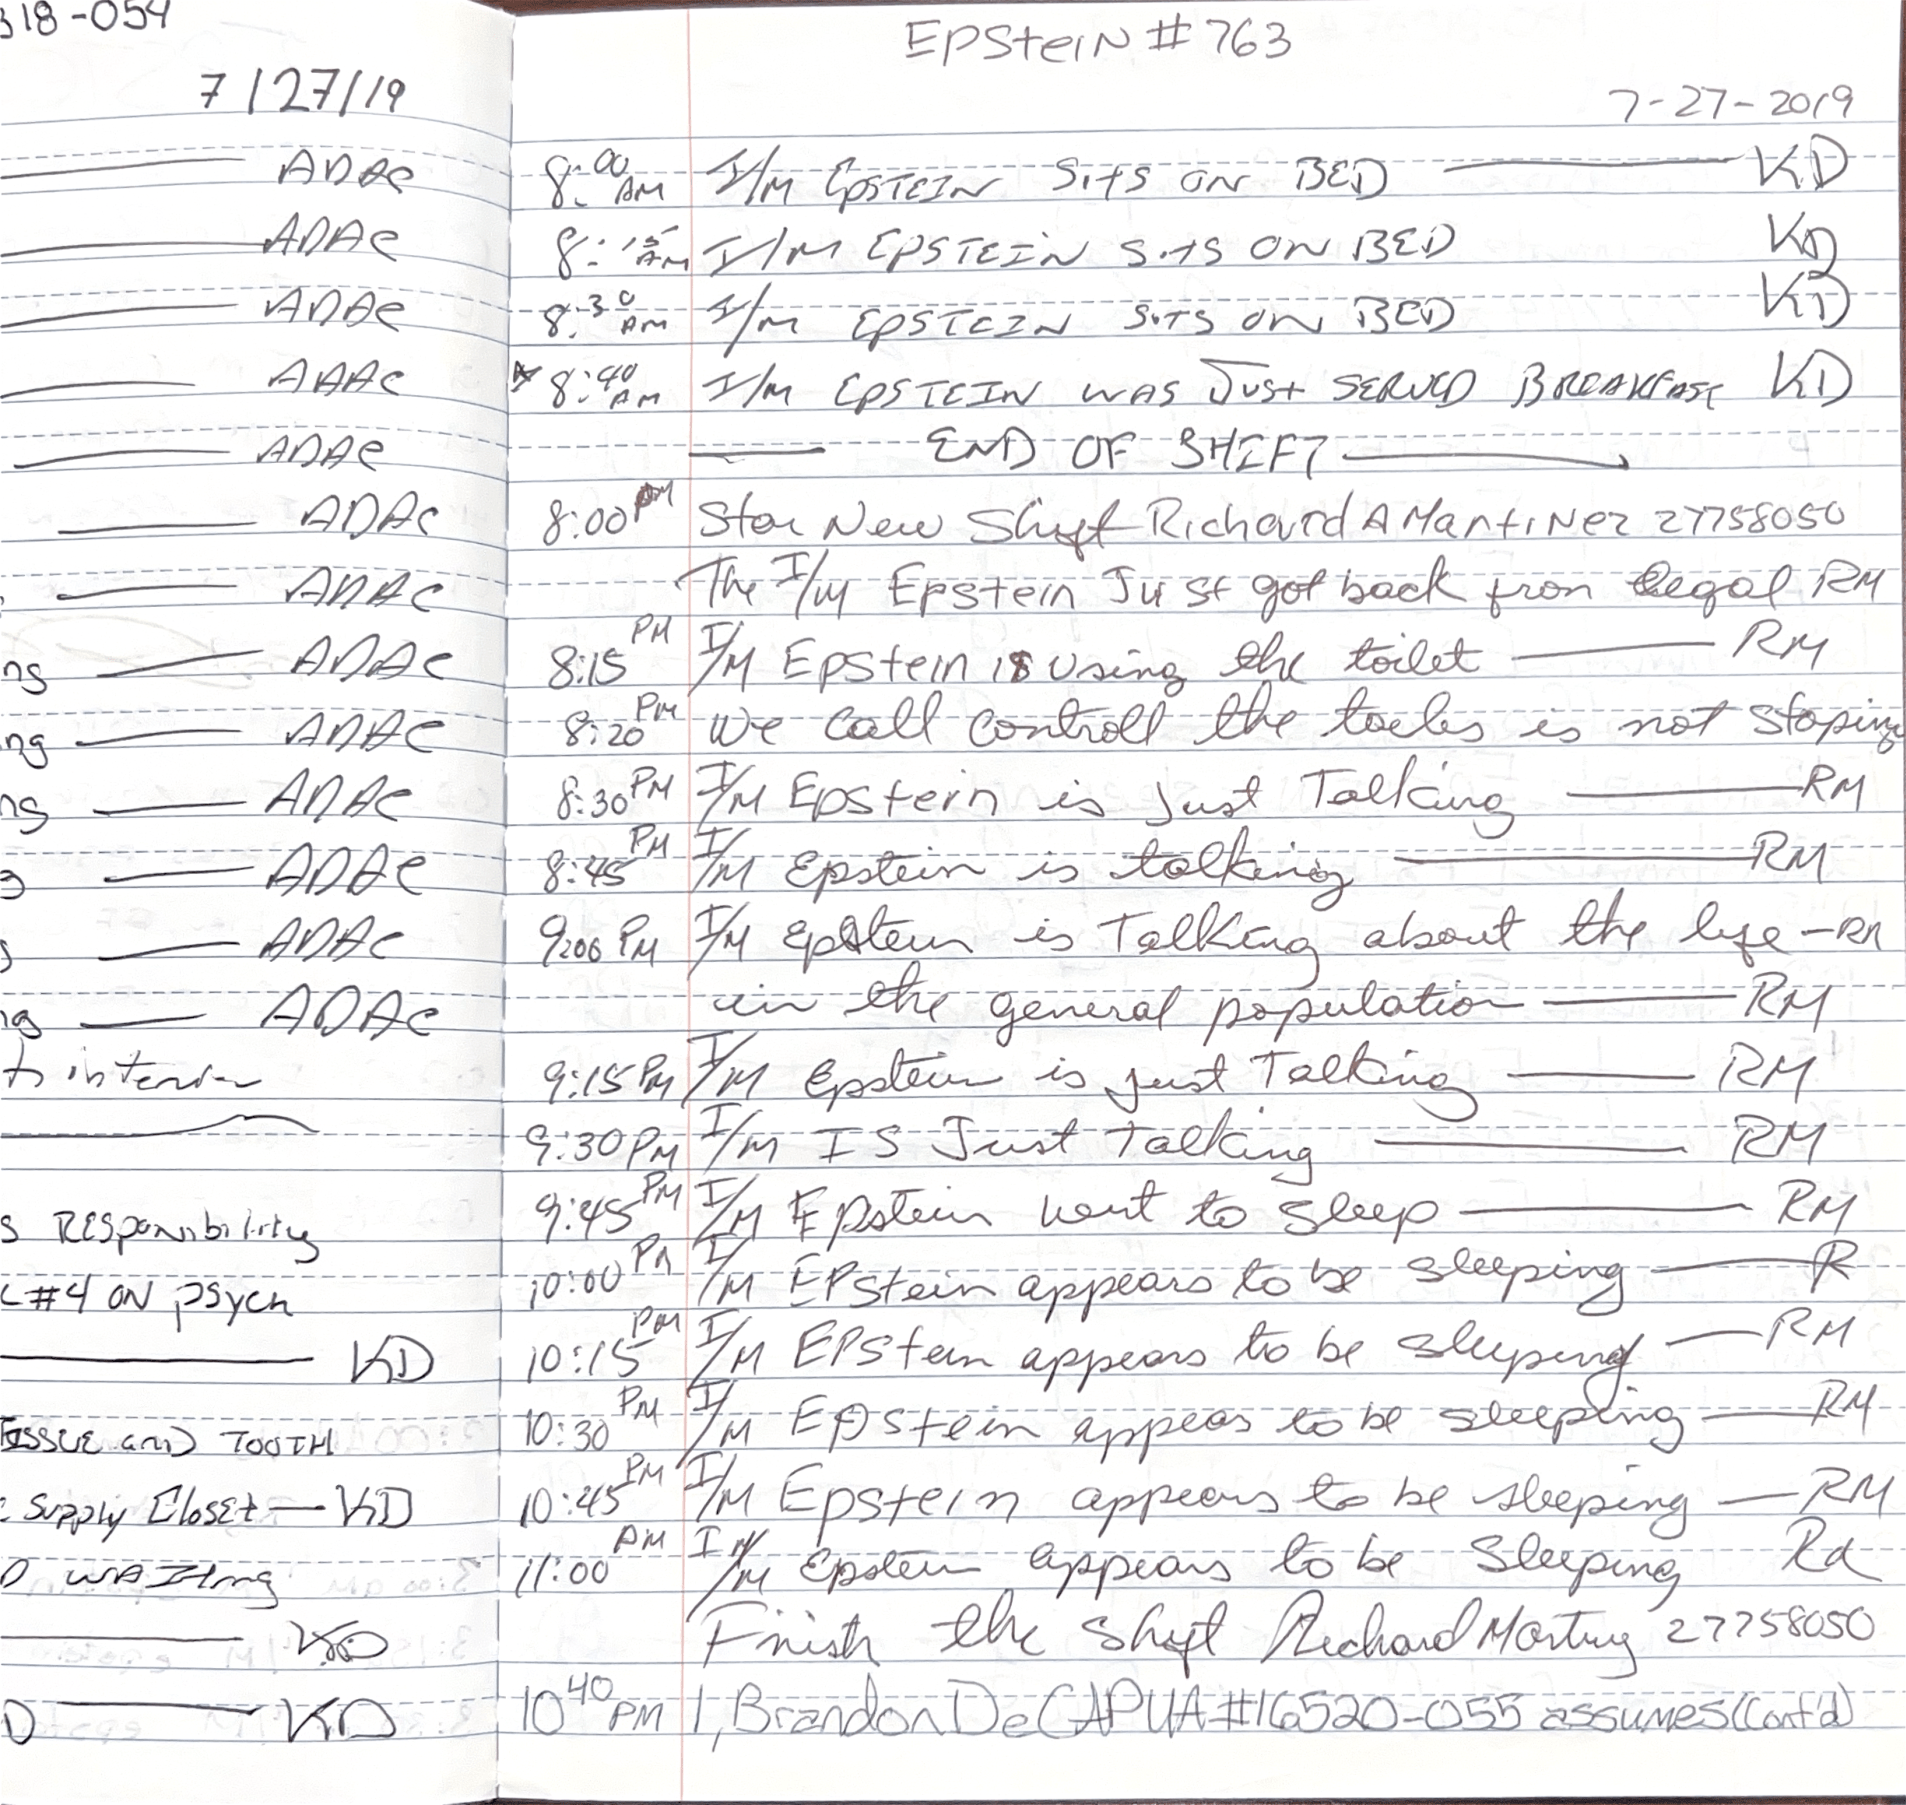 318-054
7/27/19
ADAC
ADAC
ADAC
ADAC
ADAC
ADAC
ADAC
ng ADAC
ng ADAC
ng ADAC
g ADAC
g ADAC
ng ADAC
S RESponsibility
#4 ON psych
KD
TISSUE and TOOTH
Supply Closet — KD
D WAITing
KD
D KD
EPSteiN # 763
7-27-2019
8:00 AM I/M EPSTEIN SitS ON BED KD
8:15 AM I/M EPSTEIN SitS ON BED KD
8:30 AM I/M EPSTEIN SITS ON BED KD
* 8:40 AM I/M EPSTEIN WAS JUSt SERVED BREAKFAST KD
END OF SHIFT
8:00 PM Star New Shift Richard A MartiNez 27758050
The I/M Epstein Just got back from legal RM
8:15 PM I/M Epstein is using the toilet RM
8:20 PM We call controll the is not stoping
8:30 PM I/M Epstein is just Talking RM
8:45 PM I/M Epstein is talking RM
9:00 PM I/M Epstein is Talking about the life – RM
in the general population RM
9:15 PM I/M Epstein is just Talking RM
9:30 PM I/M IS Just Talking RM
9:45 PM I/M Epstein went to sleep RM
10:00 PM I/M EPstein appears to be sleeping R
10:15 PM I/M EPStein appears to be sleeping RM
10:30 PM I/M EPstein appears to be sleeping RM
10:45 PM I/M Epstein appears to be sleeping RM
11:00 I/M Epstein appears to be Sleeping
Finish the shift Richard 27758050
10:40 PM I, Brandon DeCAPUA #16520-055 assumes (Cont'd)